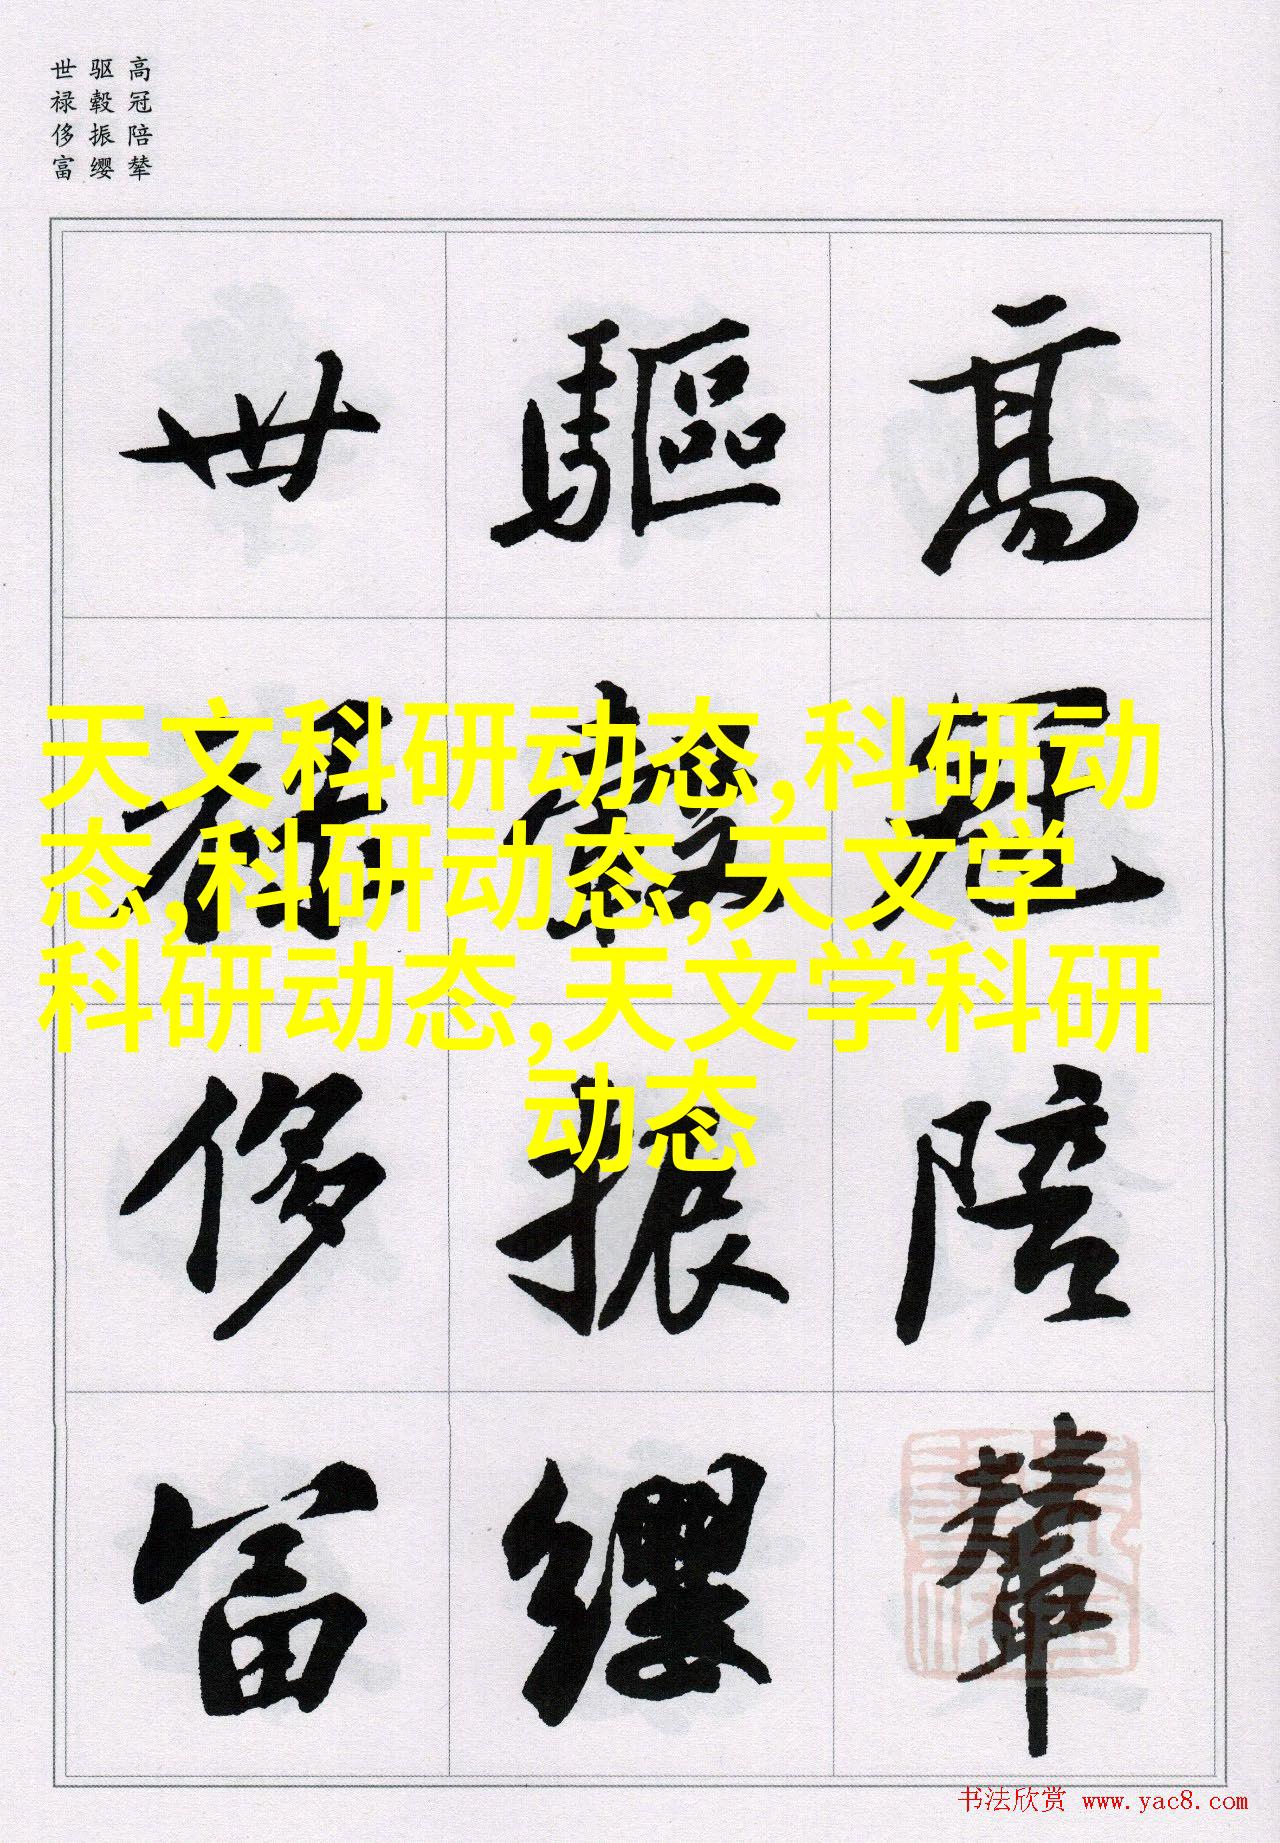 高冠陪辇
驱毂振缨
世禄侈富
高冠陪輦
驅轂振纓
世禄侈富
天文科研动态,科研动
态,科研动态,天文学
科研动态,天文学科研
动态
书法欣赏 www.yac8.com